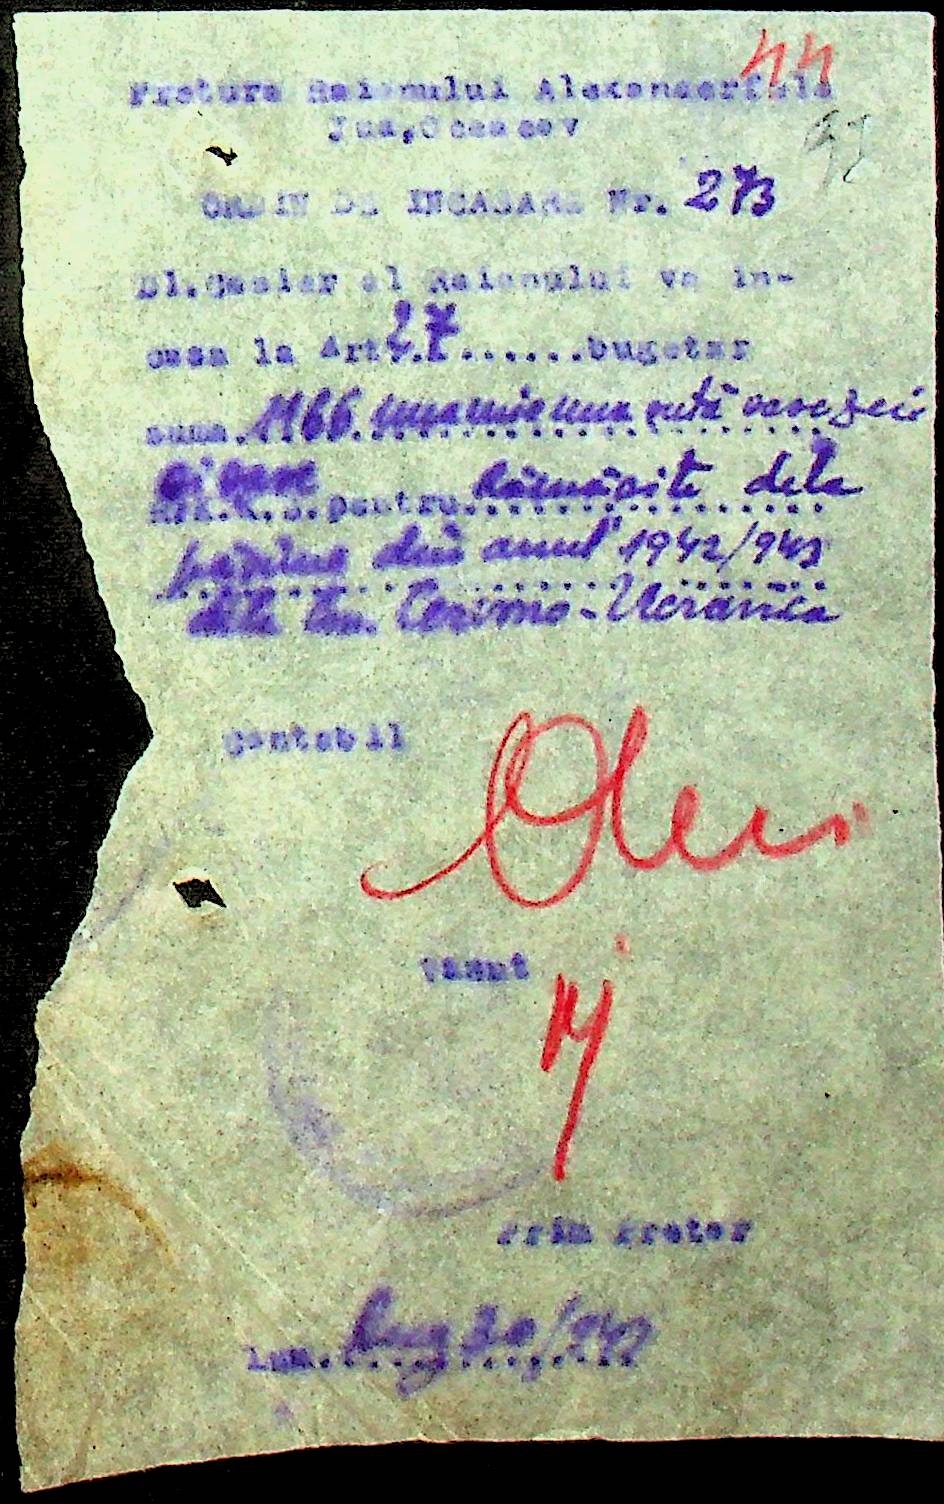 44
Pretura Raionului Alexanderfeld
Jud,Oceacov
ORDIN DE INCASARE Nr. 273
Dl.Casier al Raionului va in-
casa la Art.27.......bugetar
suma.1166
R.K.K.S.pentru. rămășite dela
din anul 1942/943
dela Com. - Ucrainca
Contabil
Vazut
Prim Pretor
Lua. Aug 20/943